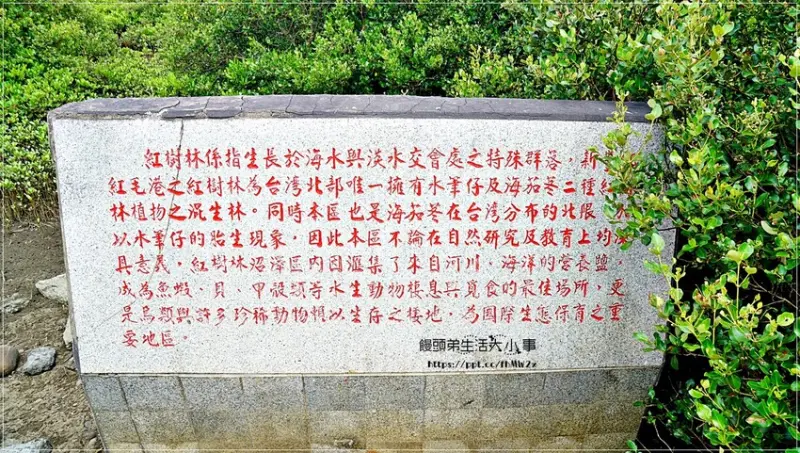 紅樹林係指生長於海水與淡水交會處之特殊群落，新
紅毛港之紅樹林為台灣北部唯一擁有水筆仔及海茄苳二種紅
林植物之混生林。同時本區也是海茄苳在台灣分布的北限
以水筆仔的胎生現象，因此本區不論在自然研究及教育上均深
具意義，紅樹林沼澤區內因滙集了來自河川，海洋的營養鹽，
成為魚蝦、貝、甲殼類等水生動物棲息與覓食的最佳場所，更
是鳥類與許多珍稀動物賴以生存之棲地，為國際生態保育之重
要地區。
饅頭弟生活大小事
https://ppt.cc/fhMW2x